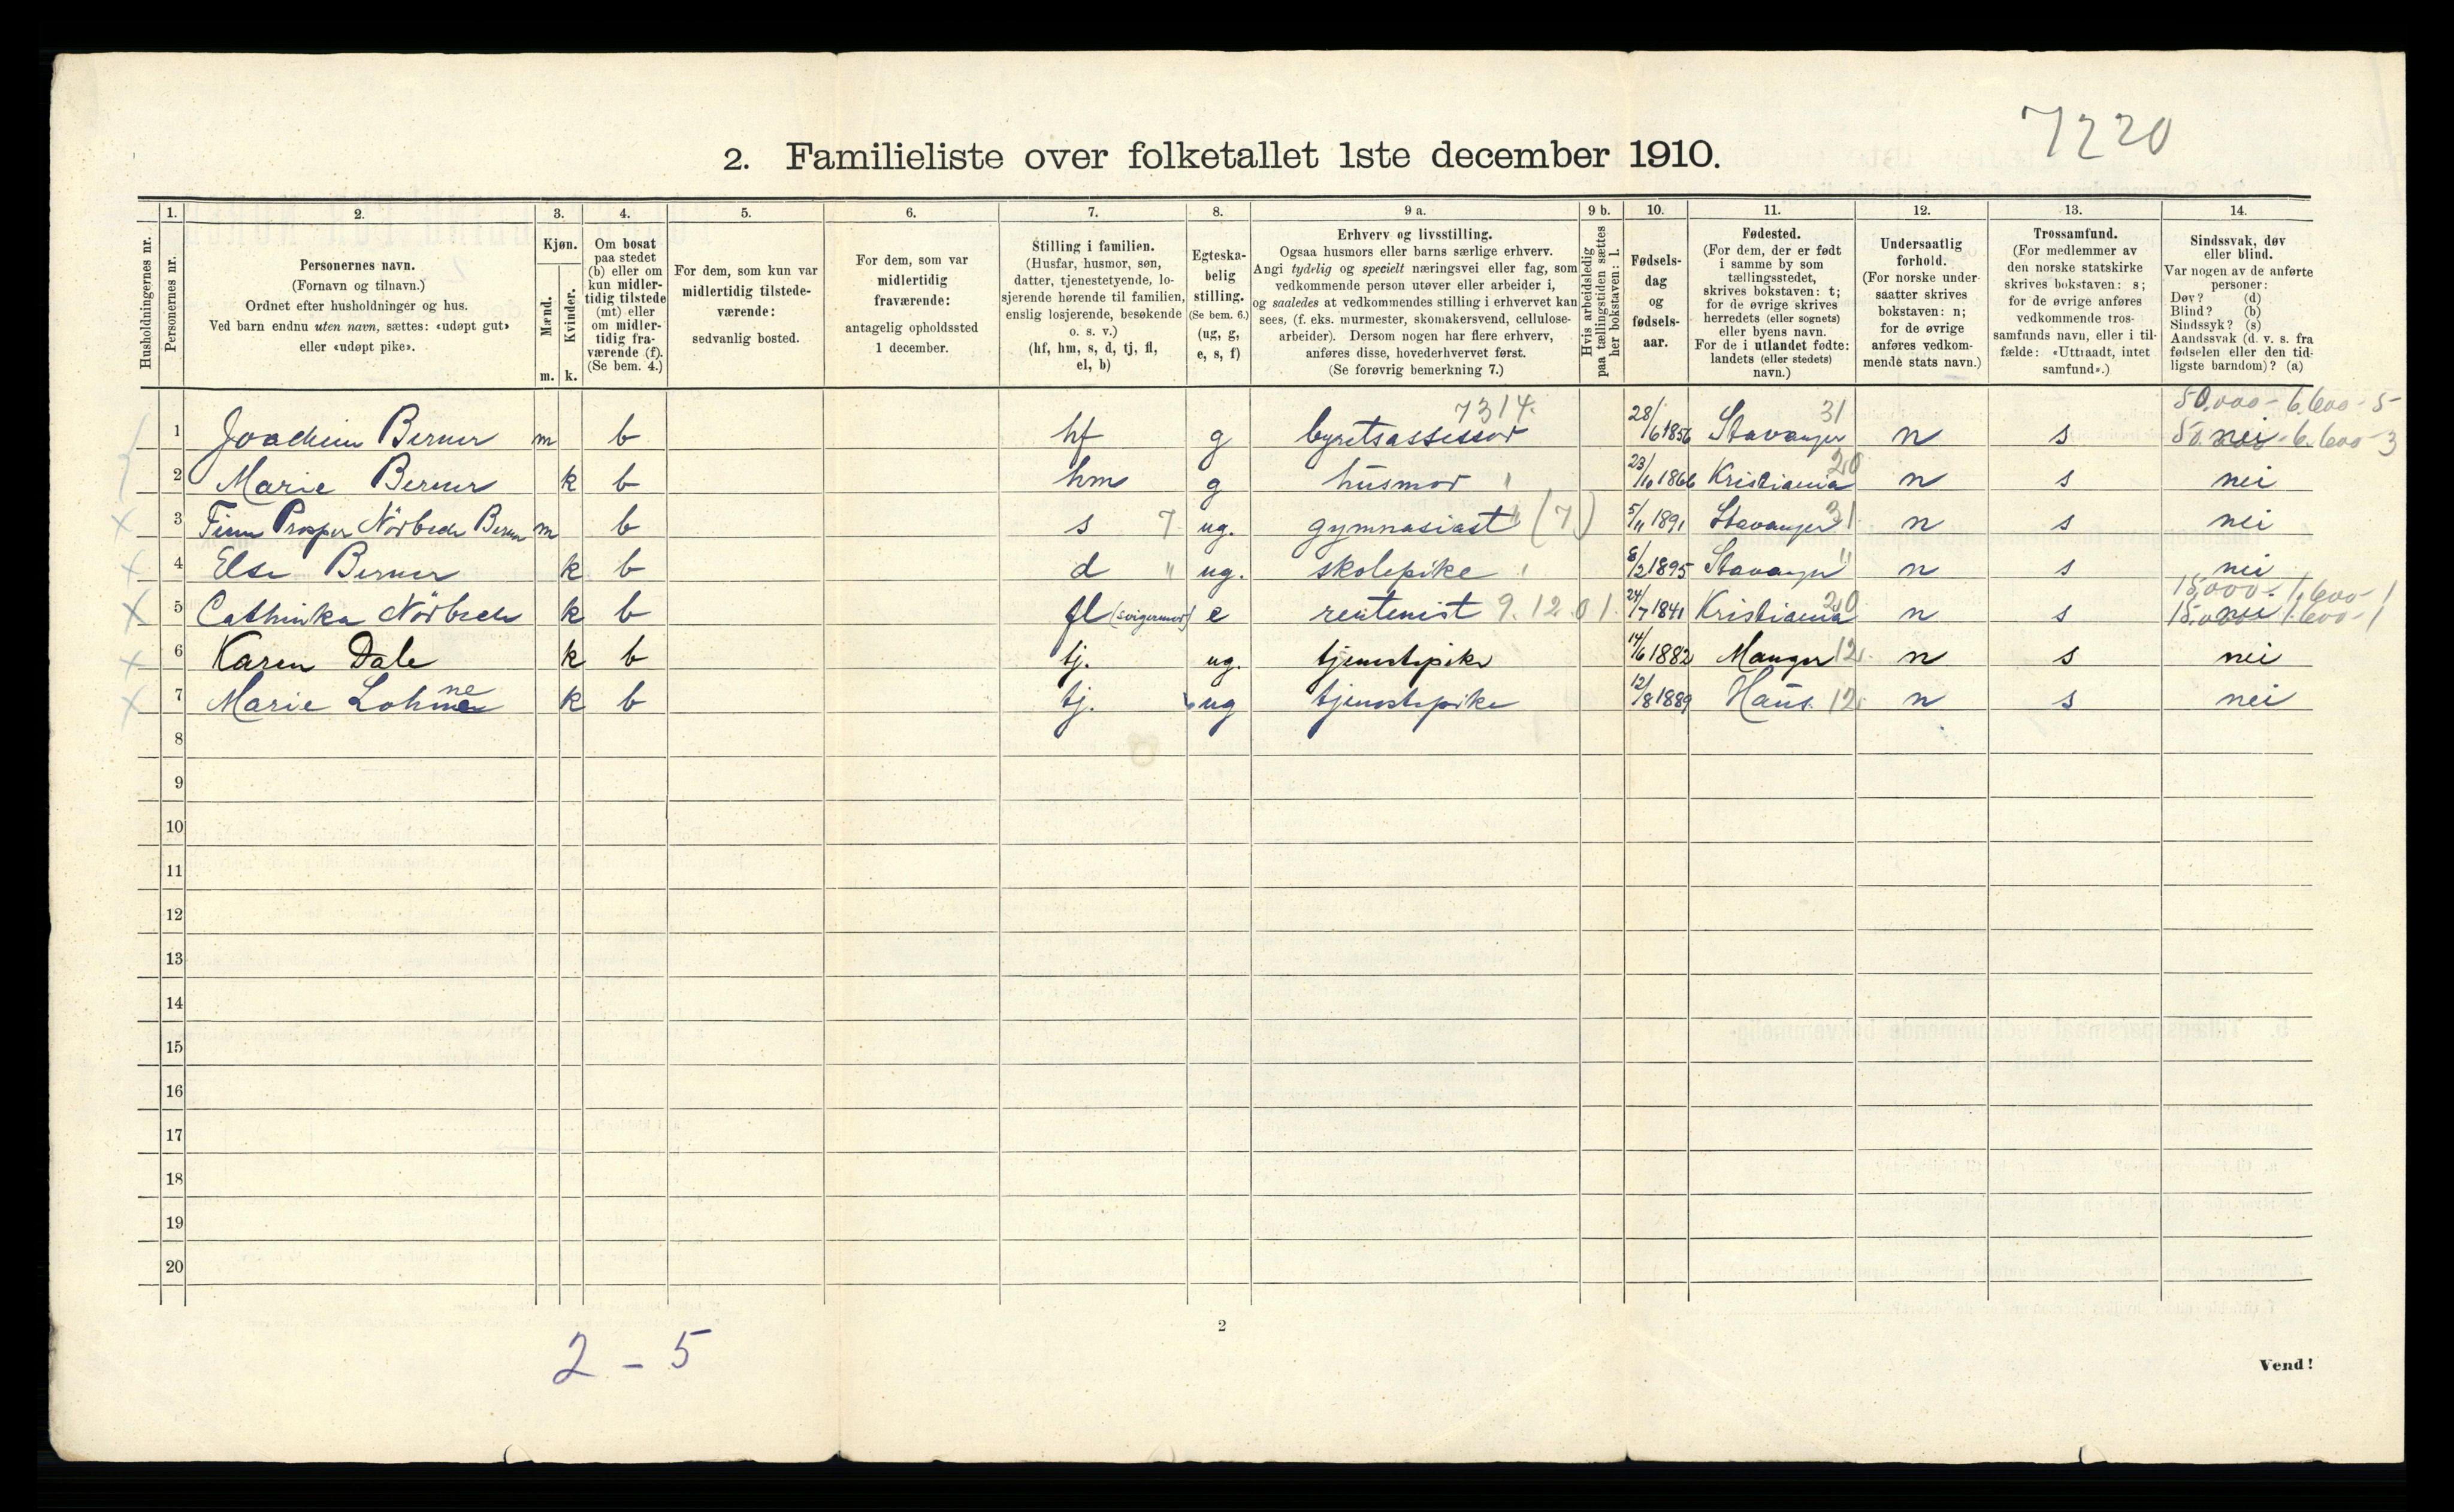 7220
2. Familieliste over folketallet 1ste december 1910.
Husholdningernes nr.
1. Personernes nr.
2. Personernes navn. (Fornavn og tilnavn.) Ordnet efter husholdninger og hus. Ved barn endnu uten navn, sættes: «udøpt gut» eller «udøpt pike».
3. Kjøn. Mænd. Kvinder. m. k.
4. Om bosat paa stedet (b) eller om kun midlertidig tilstede (mt) eller om midlertidig fraværende (f). (Se bem. 4.)
5. For dem, som kun var midlertidig tilstedeværende: sedvanlig bosted.
6. For dem, som var midlertidig fraværende: antagelig opholdssted 1 december.
7. Stilling i familien. (Husfar, husmor, søn, datter, tjenestetyende, losjerende hørende til familien, enslig losjerende, besøkende o. s. v.) (hf, hm, s, d, tj, fl, el, b)
8. Egteskabelig stilling. (Se bem. 6.) (ug, g, e, s, f)
9 a. Erhverv og livsstilling. Ogsaa husmors eller barns særlige erhverv. Angi tydelig og specielt næringsvei eller fag, som vedkommende person utøver eller arbeider i, og saaledes at vedkommendes stilling i erhvervet kan sees, (f. eks. murmester, skomakersvend, cellulosearbeider). Dersom nogen har flere erhverv, anføres disse, hovederhvervet først. (Se forøvrig bemerkning 7.)
9 b. Hvis arbeidsledig paa tællingstiden sættes her bokstaven: l.
10. Fødselsdag og fødselsaar.
11. Fødested. (For dem, der er født i samme by som tællingsstedet, skrives bokstaven: t; for de øvrige skrives herredets (eller sognets) eller byens navn. For de i utlandet fødte: landets (eller stedets) navn.)
12. Undersaatlig forhold. (For norske undersaatter skrives bokstaven: n; for de øvrige anføres vedkommende stats navn.)
13. Trossamfund. (For medlemmer av den norske statskirke skrives bokstaven: s; for de øvrige anføres vedkommende trossamfunds navn, eller i tilfælde: «Uttraadt, intet samfund».)
14. Sindssvak, døv eller blind. Var nogen av de anførte personer: Døv? (d) Blind? (b) Sindssyk? (s) Aandssvak (d. v. s. fra fødselen eller den tidligste barndom)? (a)
7314. 31 50.000 - 6.600 - 5
1 Joachim Berner m b hf g byretsassessor 28/6 1856 Stavanger n s nei 50.000 - 6.600 - 3
2 Marie Berner k b hm g husmor " 23/10 1866 Kristiania 20 n s nei
3 Finn Prosper Nörbech Berner m b s 7 ug. gymnasiast " (7) 5/11 1891 Stavanger 31 n s nei
4 Else Berner k b d " ug. skolepike " 8/2 1895 Stavanger " n s nei
15,000 - 1,600 - 1
5 Cathinka Nörbech k b fl (svigermor) e rentenist 9.12.01. 24/7 1841 Kristiania 20 n s nei 15.000 1.600 - 1
6 Karen Dale k b tj. ug. tjenestepike 14/6 1882 Manger 12. n s nei
7 Marie Lohne k b tj. ug tjenestepike 12/8 1889 Haus. 12. n s nei
8
9
10
11
12
13
14
15
16
17
18
19
20
2
2 - 5
Vend!